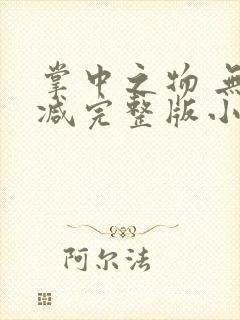 掌中之物 無
减完整版小
阿尔法